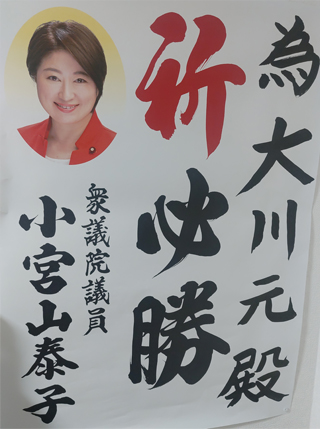 為大川元殿
祈必勝
衆議院議員
小宮山泰子